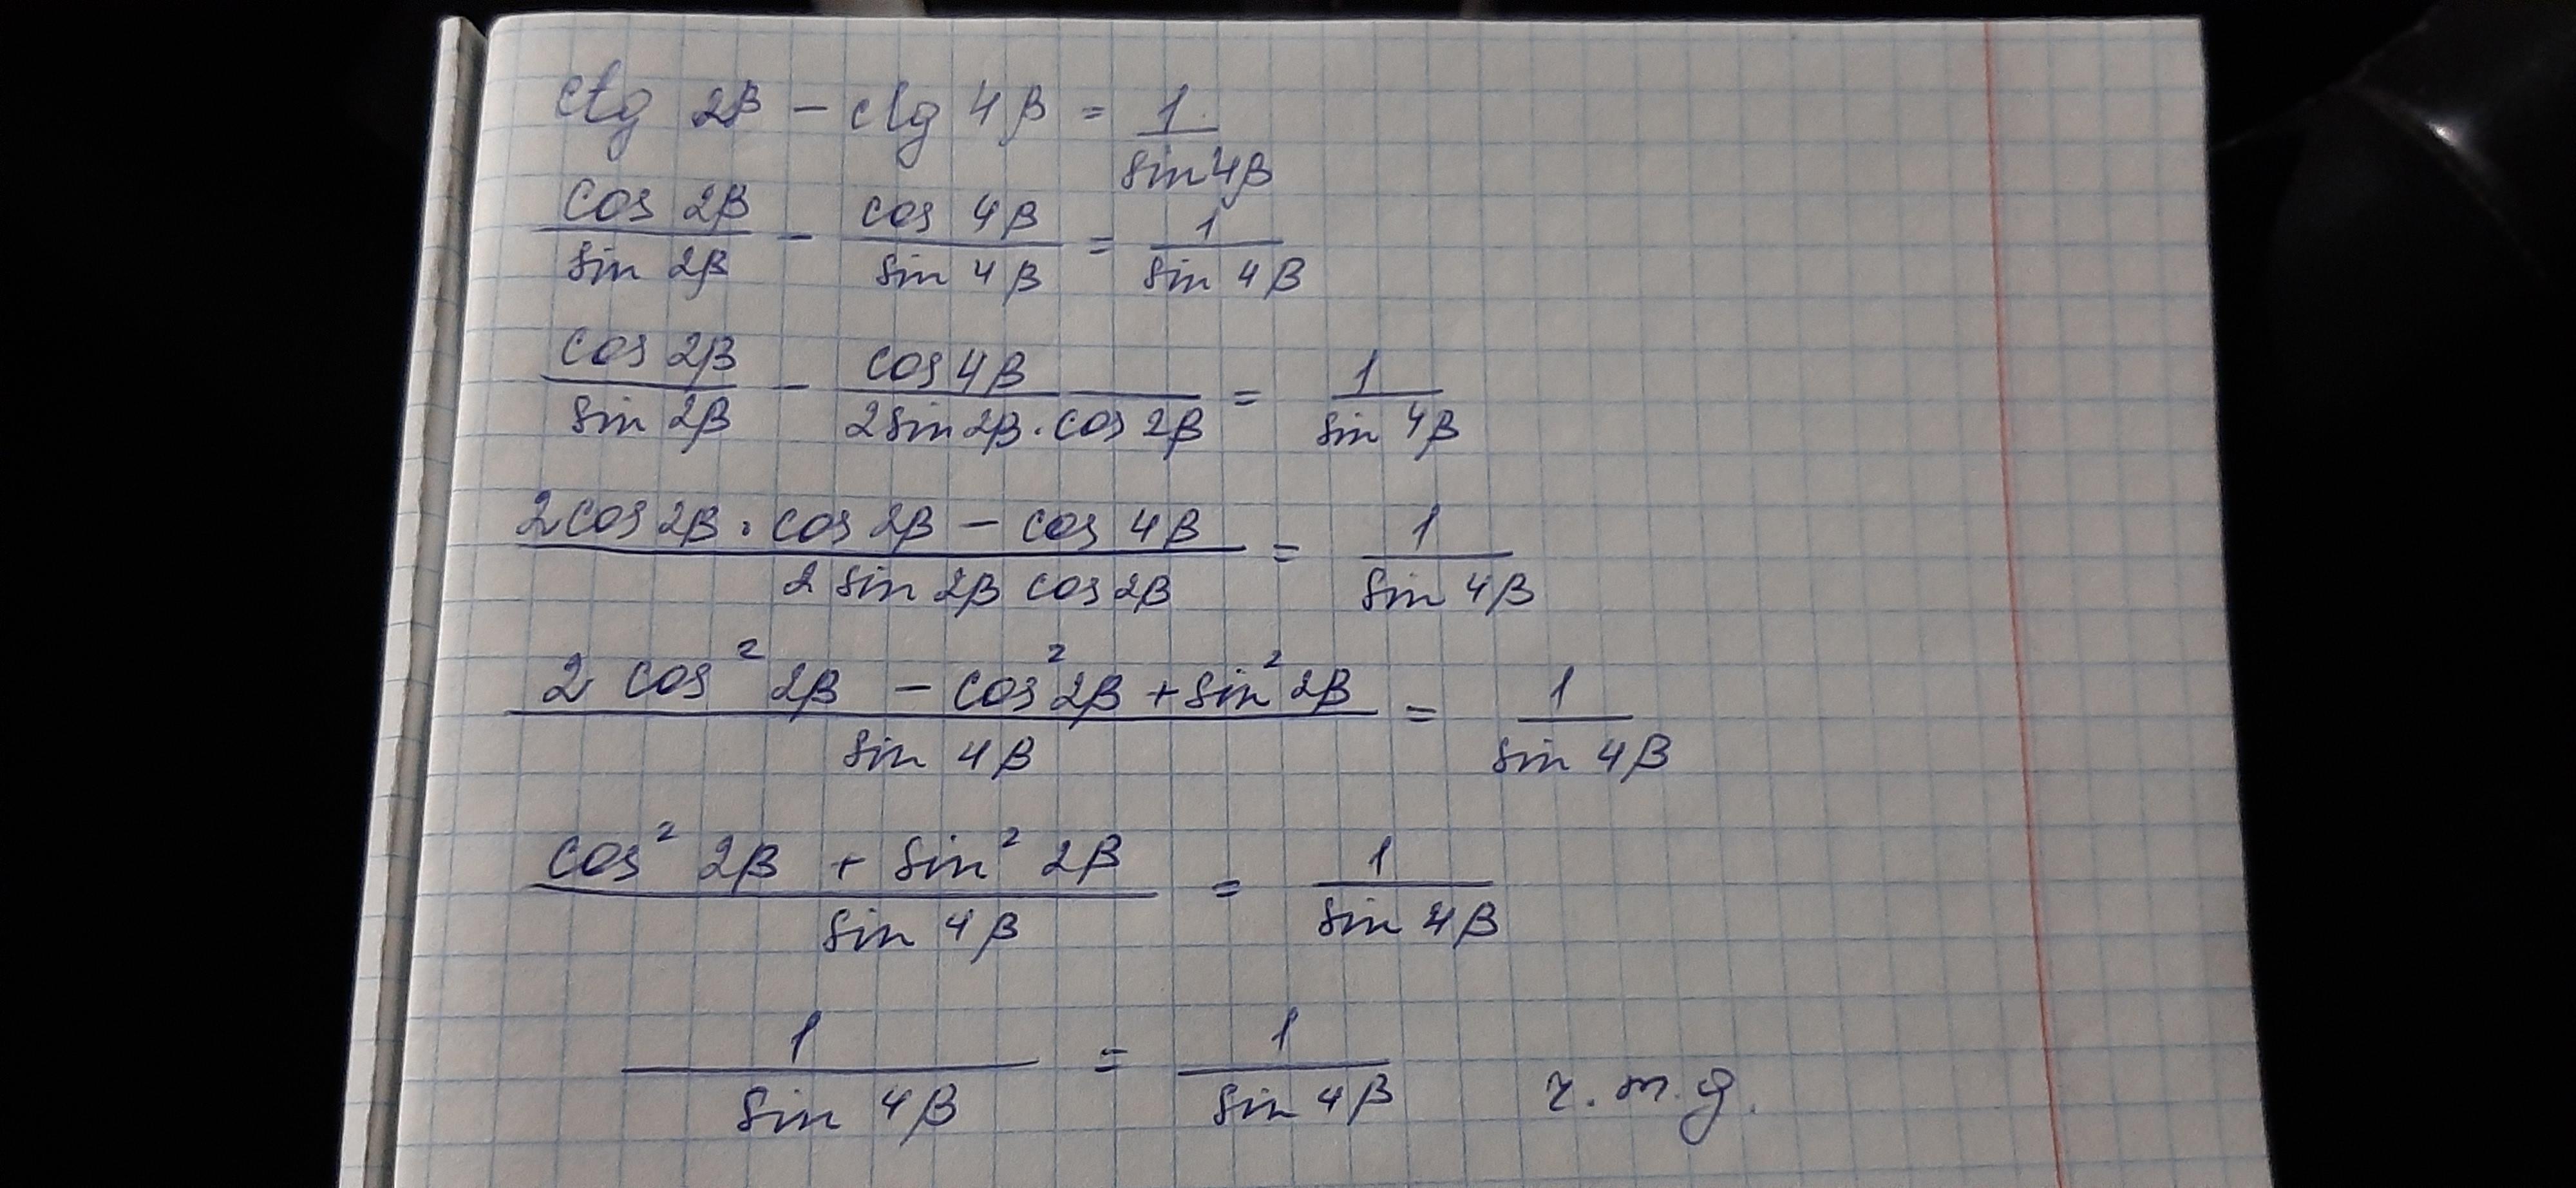 ctg 2β − ctg 4β = 1/sin 4β
cos 2β/sin 2β − cos 4β/sin 4β = 1/sin 4β
cos 2β/sin 2β − cos 4β/2 sin 2β · cos 2β = 1/sin 4β
2 cos 2β · cos 2β − cos 4β/2 sin 2β cos 2β = 1/sin 4β
2 cos² 2β − cos² 2β + sin² 2β/sin 4β = 1/sin 4β
cos² 2β + sin² 2β/sin 4β = 1/sin 4β
1/sin 4β = 1/sin 4β ч.т.д.